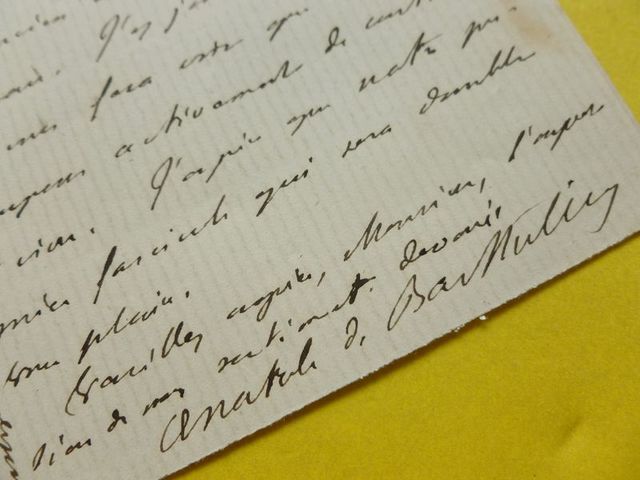 J'ai
nous fera voir que
activement de
sion. J'espère que notre pre-
mier fascicule qui sera double
vous plaira.
Veuillez agréer, Monsieur, l'expres-
sion de mes sentiments dévoués
Anatole de Barthélemy